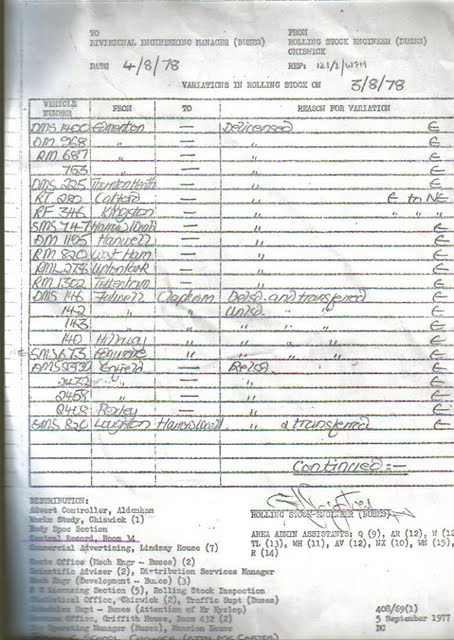 TO FROM
DIVISIONAL ENGINEERING MANAGER (BUSES) ROLLING STOCK ENGINEER (BUSES)
CHISWICK
DATE 4/8/78 REF: 121/2/WPM
VARIATIONS IN ROLLING STOCK ON 3/8/78
VEHICLE NUMBER FROM TO REASON FOR VARIATION
DMS 1400 Edmonton — Delicensed E
DM 968 " — " E
RM 687 " — " E
753 " — " E
DMS 225 Thornton Heath — " E
RT 280 Catford — " E to NE
RF 346 Kingston — " " " "
SMS 747 Harrow Weald — " E
DM 1195 Hanwell — " E
RM 820 West Ham — " E
RML Upton Park — " E
RM 1302 Tottenham — " E
DMS 146 Fulwell Clapham Delic. and transferred E
142 " " Unlic. " " E
143 " " " " " E
140 Highway " " " " E
SMS 673 " " " " E
DMS Enfield — Relic. E
2472 " — " E
2468 " — " E
2418 Bexley — " E
SMS 820 Loughton Harrow Weald " & transferred E
Continued:-
DISTRIBUTION:
Advert Controller, Aldenham
Works Study, Chiswick (1)
Body Spec Section
Central Record, Room 34
Commercial Advertising, Lindsay House (7)
Costs Office (Mech Engr - Buses) (2)
Scientific Adviser (2), Distribution Services Manager
Mech Engr (Development - Buses) (3)
Licensing Section (5), Rolling Stock Inspection
Statistical Office, Chiswick (2), Traffic Supt (Buses)
Schedules Supt - Buses (Attention of Mr Hyslop)
Revenue Office, Griffith House, Room 432 (2)
Operating Manager (Buses), Mansion House
SCHOOL, CHISWICK (ATTN MR CARTER)
ROLLING STOCK ENGINEER (BUSES)
AREA ADMIN ASSISTANTS: Q (9), AR (12), W (12
TL (13), WH (11), AV (12), NX (10), WN (15),
R (14)
408/69(1)
5 September 1977
DC